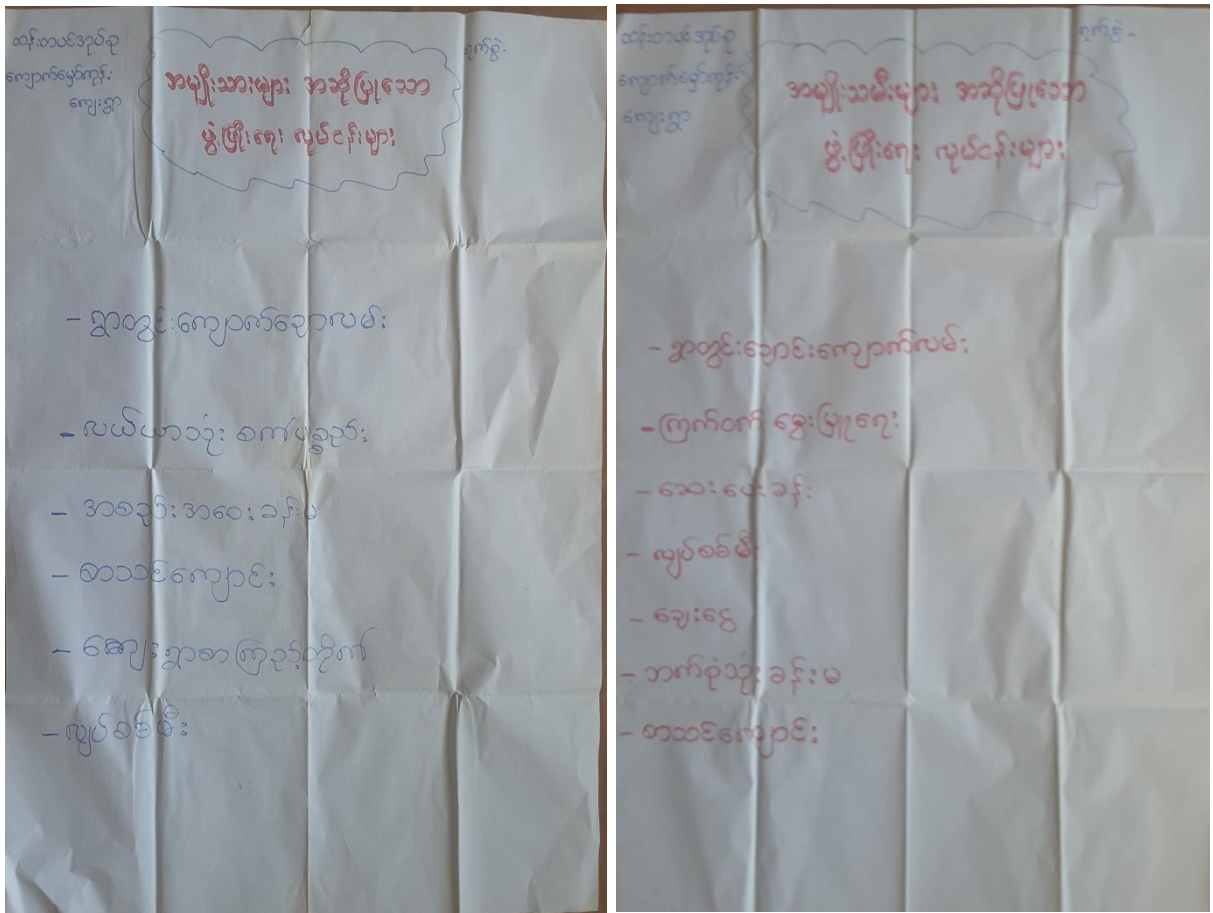 ထန်းတပင်အုပ်စု
ကျောက်မှော်ကုန်း
ကျေးရွာ
ရက်စွဲ-
အမျိုးသားများ အဆိုပြုသော
ဖွံ့ဖြိုးရေး လုပ်ငန်းများ
- ရွာတွင်းကျောက်ချောလမ်း
- လယ်ယာသုံး စက်ပစ္စည်း
- အစည်းအဝေးခန်းမ
- စာသင်ကျောင်း
- ကျေးရွာစာကြည့်တိုက်
- လျှပ်စစ်မီး
ထန်းတပင်အုပ်စု
ကျောက်မှော်ကုန်း
ကျေးရွာ
ရက်စွဲ-
အမျိုးသမီးများ အဆိုပြုသော
ဖွံ့ဖြိုးရေး လုပ်ငန်းများ
- ရွာတွင်းချောင်းကျောက်လမ်း
- ကြက်ဝက် မွေးမြူရေး
- ဆေးပေးခန်း
- လျှပ်စစ်မီး
- ချေးငွေ
- ဘက်စုံသုံးခန်းမ
- စာသင်ကျောင်း